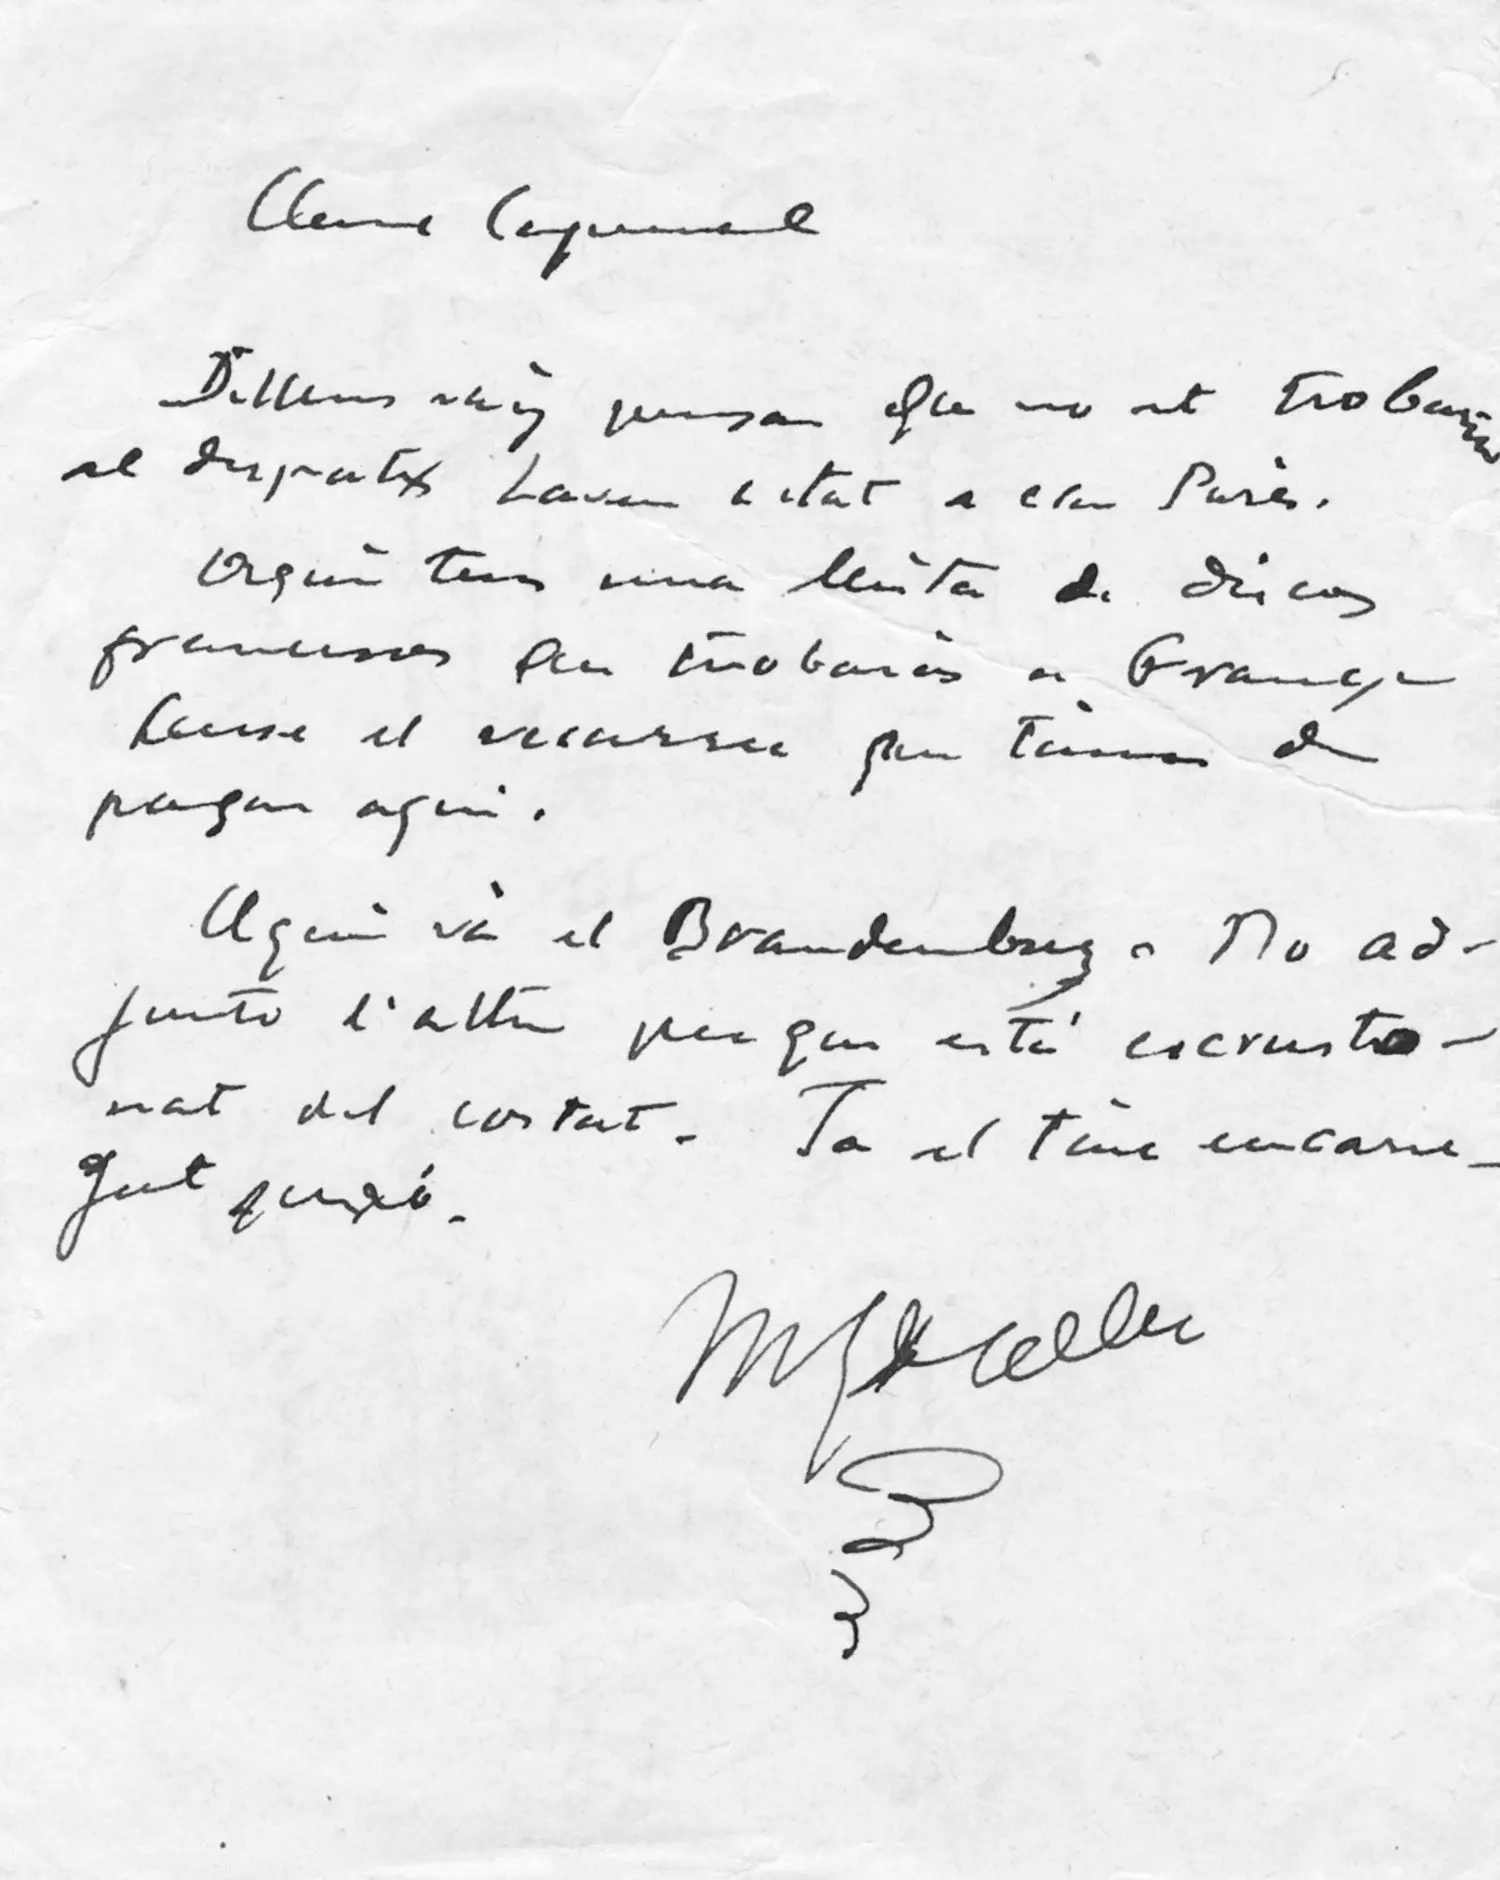 Dilluns vaig pensar que no et trobaria
al despatx havan estat a can París.
Aquí tens una llista de discos
francesos que trobaràs a França
sense el recàrrec que tenim de
pagar aquí.
Aquí va el Brandenburg. No ad-
junto l'altre perque está escrosto-
nat del costat. Ja el tinc encarre-
gat però.